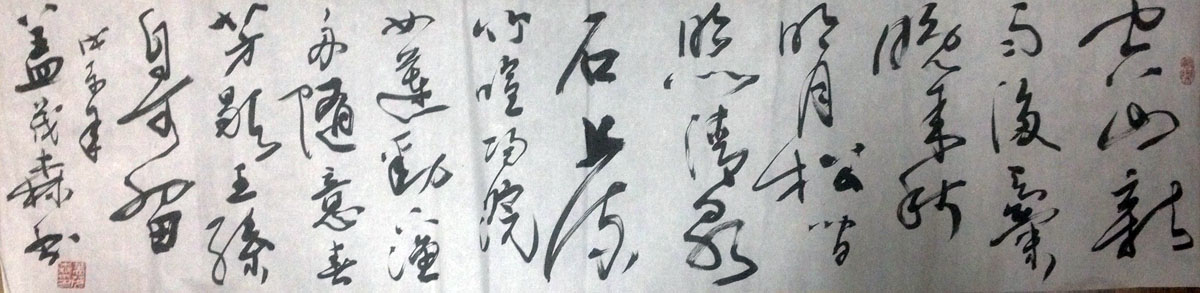 空山新
雨後天氣
晚来秋
明月松間
照清泉
石上流
竹喧歸浣
女蓮動下漁
舟隨意春
芳歇王孫
自可留
年
盖茂森书